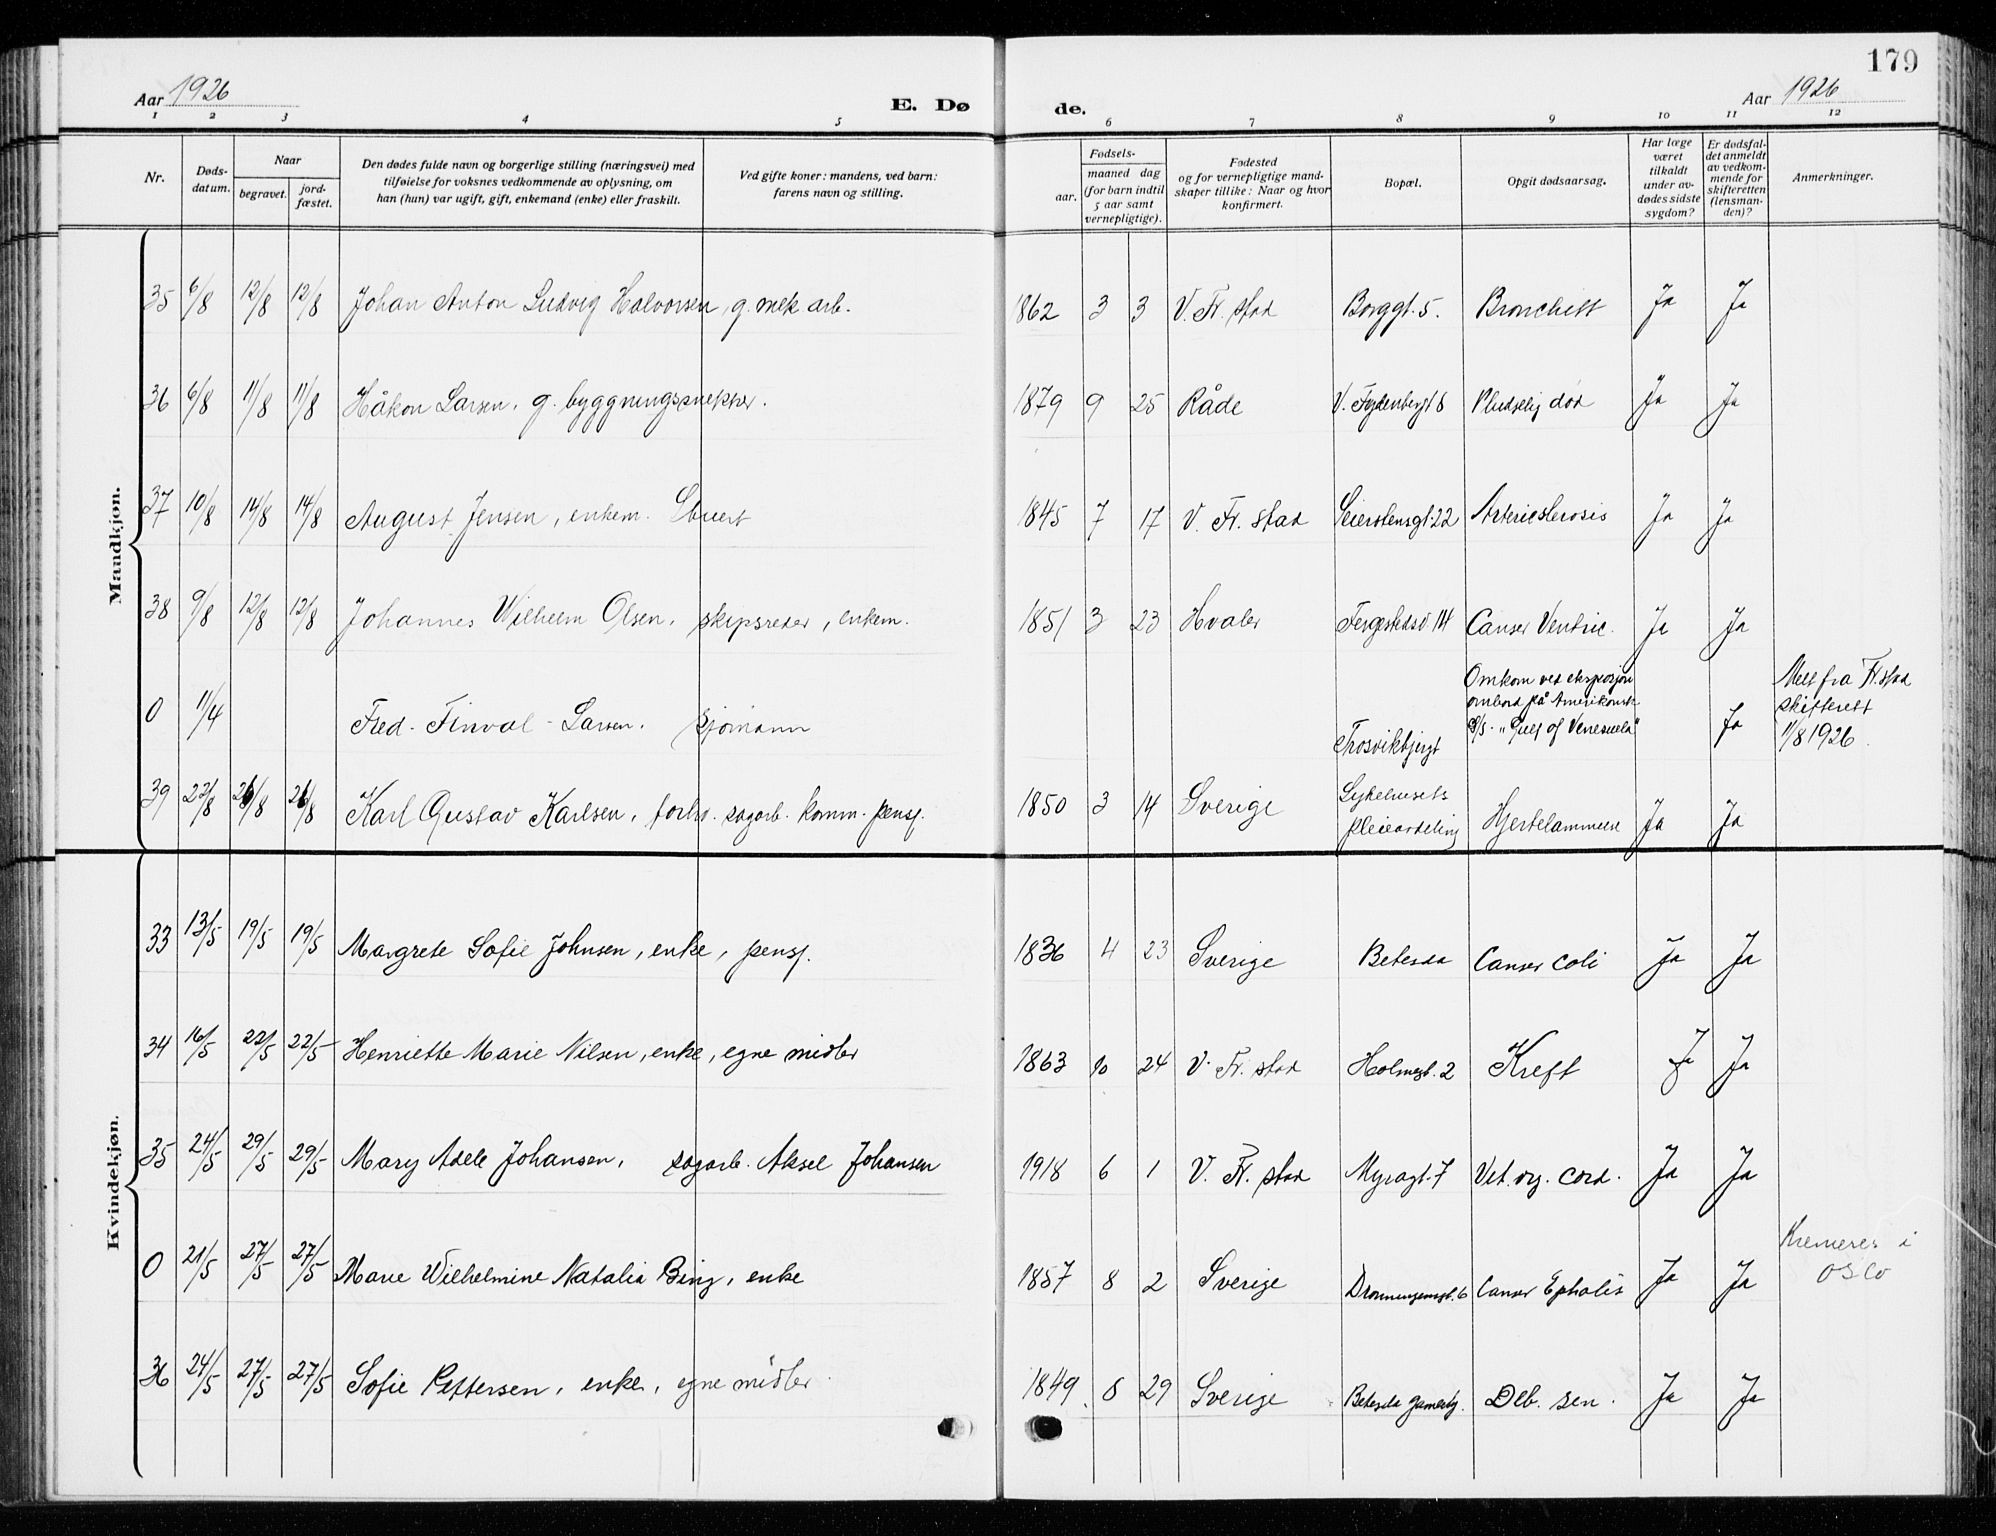 179
Aar 1926
E. Dø de.
Aar 1926
1 2 3 4 5 6 7 8 9 10 11 12
Nr.
Døds-
datum.
Naar
begravet.
jord-
fæstet.
Den dødes fulde navn og borgerlige stilling (næringsvei) med
tilføielse for voksnes vedkommende av oplysning, om
han (hun) var ugift, gift, enkemand (enke) eller fraskilt.
Ved gifte koner: mandens, ved barn:
farens navn og stilling.
Fødsels-
aar.
maaned dag
(for barn indtil
5 aar samt
vernepligtige).
Fødested
og for vernepligtige mand-
skaper tillike: Naar og hvor
konfirmert.
Bopæl.
Opgit dødsaarsag.
Har læge
været
tilkaldt
under av-
dødes sidste
sygdom?
Er dødsfal-
det anmeldt
av vedkom-
mende for
skifteretten
(lensman-
den)?
Anmerkninger.
Mandkjøn.
35 6/8 12/8 12/8 Johan Anton Ludvig Halvorsen, g. mek arb. 1862 3 3 V. Fr. stad Borggt. 5. Bronchitt Ja Ja
36 6/8 11/8 11/8 Håkon Larsen, g. byggningssnekker. 1879 9 25 Råde Pludselig død Ja Ja
37 10/8 14/8 14/8 August Jensen, enkem. 1845 7 17 V. Fr. stad Seierstensgt. 22 Ja Ja
38 9/8 12/8 12/8 Johannes Wilhelm Olsen, skipsreder, enkem. 1851 3 23 Hvaler Canser Ventric. Ja Ja
0 11/4 Fred. Finval-Larsen. sjømann Trosvikbjergt
Omkom ved eksplosjon
ombord på Amerikansk
S/S. "Gulf of Venesuela"
Ja
Melt fra Fr. stad
skifterett
11/8 1926.
39 22/8 26/8 26/8 Karl Gustav Karlsen, forhv. sagarb. komm. pensj. 1850 3 14 Sverige
Sykehusets
pleieavdeling
Hjertelammelse Ja Ja
Kvindekjøn.
33 13/5 19/5 19/5 Margrete Sofie Johnsen, enke, pensj. 1836 4 23 Sverige Betesda Canser coli Ja Ja
34 16/5 22/5 22/5 Henriette Marie Nilsen, enke, egne midler 1863 10 24 V. Fr. stad Holmegt. 2 Kreft Ja Ja
35 24/5 29/5 29/5 Mary Adele Johansen, sagarb. Aksel Johansen 1918 6 1 V. Fr. stad Myragt. 7 Vit. org. cord. Ja Ja
0 21/5 27/5 27/5 Marie Wilhelmine Natalia Bing, enke 1857 8 2 Sverige Dronningensgt. 6 Canser Ja Ja
Kremeres i
Oslo
36 24/5 27/5 27/5 Sofie Pettersen, enke, egne midler. 1849 8 29 Sverige Betesda Deb. sen. Ja Ja